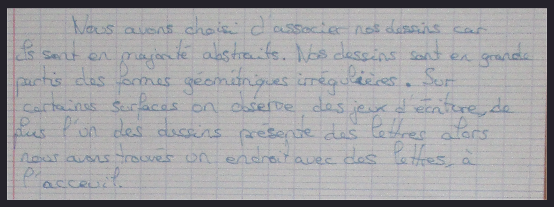 Nous avons choisi d'associer nos dessins car
ils sont en majorité abstraits. Nos dessins sont en grande
partis des formes géométriques irrégulières. Sur
certaines surfaces on observe des jeux d'écriture, de
plus l'un des dessins présente des lettres alors
nous avons trouvés un endroit avec des lettres, à
l'acceuil.